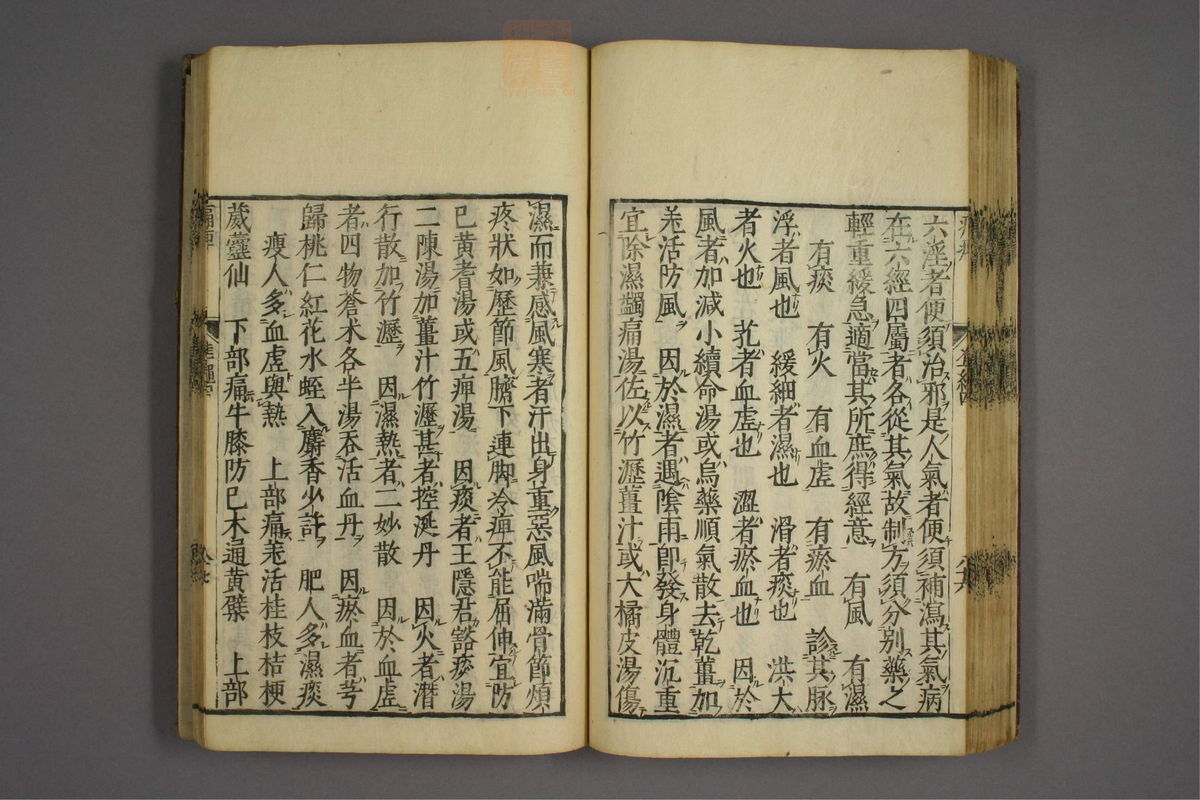 六淫者便須治邪是人氣者便須補瀉其氣病
在六經四屬者各從其氣故制方須分別藥之
輕重緩急適當其所庶得經意　有風　有濕
有痰　有火　有血虛　有瘀血　診其脉
浮者風也　緩細者濕也　滑者痰也　洪大
者火也　芤者血虛也　澀者瘀血也　因於
風者加減小續命湯或烏藥順氣散去乾薑加
羌活防風　因於濕者遇陰雨即發身體沉重
宜除濕蠲痛湯佐以竹瀝薑汁或大橘皮湯傷
濕而兼感風寒者汗出身重惡風喘滿骨節煩
疼狀如歷節風臍下連脚冷痺不能屈伸宜防
已黃耆湯或五痺湯　因痰者王隱君豁痰湯
二陳湯加薑汁竹瀝甚者控涎丹　因火者潛
行散加竹瀝　因濕熱者二妙散　因於血虛
者四物蒼朮各半湯吞活血丹　因瘀血者芎
歸桃仁紅花水蛭入麝香少許　肥人多濕痰
瘦人多血虛與熱　上部痛羌活桂枝桔梗
葳靈仙　下部痛牛膝防已木通黃蘗　上部